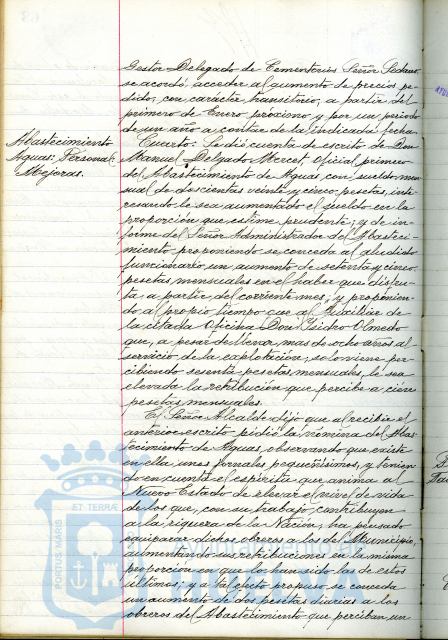 Gestor Delegado de Cementerios Señor Seduno
se acordó acceder al aumento de precios pe-
dido, con carácter transitorio, a partir del
primero de Enero próximo y por un periodo
de un año a contar de la indicada fecha.
Abastecimiento
Aguas: Personal:
Mejoras.
Cuarto: Se dió cuenta de escrito de Don
Manuel Delgado Mercet, Oficial primero
del Abastecimiento de Aguas, con sueldo men-
sual de doscientas veinte y cinco pesetas, inte-
resando le sea aumentado el sueldo en la
proporción que estime prudente; y de in-
forme del Señor Administrador del Abasteci-
miento proponiendo se conceda al aludido
funcionario un aumento de setenta y cinco
pesetas mensuales en el haber que disfru-
ta, a partir del corriente mes; y proponien-
do al propio tiempo que al Auxiliar de
la citada Oficina Don Isidro Olmedo
que, a pesar de llevar mas de ocho años al
servicio de la explotación, solo viene per-
cibiendo sesenta pesetas mensuales, le sea
elevada la retribución que percibe a cien
pesetas mensuales.
El Señor Alcalde dijo que al recibir el
anterior escrito pidió la nómina del Abas-
tecimiento de Aguas, observando que existe
en ella unos jornales pequeñísimos, y tenien-
do en cuenta el espíritu que anima al
Nuevo Estado de elevar el nivel de vida
de los que, con su trabajo contribuyen
a la riqueza de la Nación, ha pensado
equiparar dichos obreros a los del Municipio,
aumentando sus retribuciones en la misma
proporción en que lo han sido las de estos
últimos; y a tal efecto propuso se conceda
un aumento de dos pesetas diarias a los
obreros del Abastecimiento que perciban un
PORTUS MARIS
ET TERRÆ